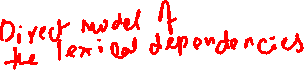 Direct model of
the lexical dependencies